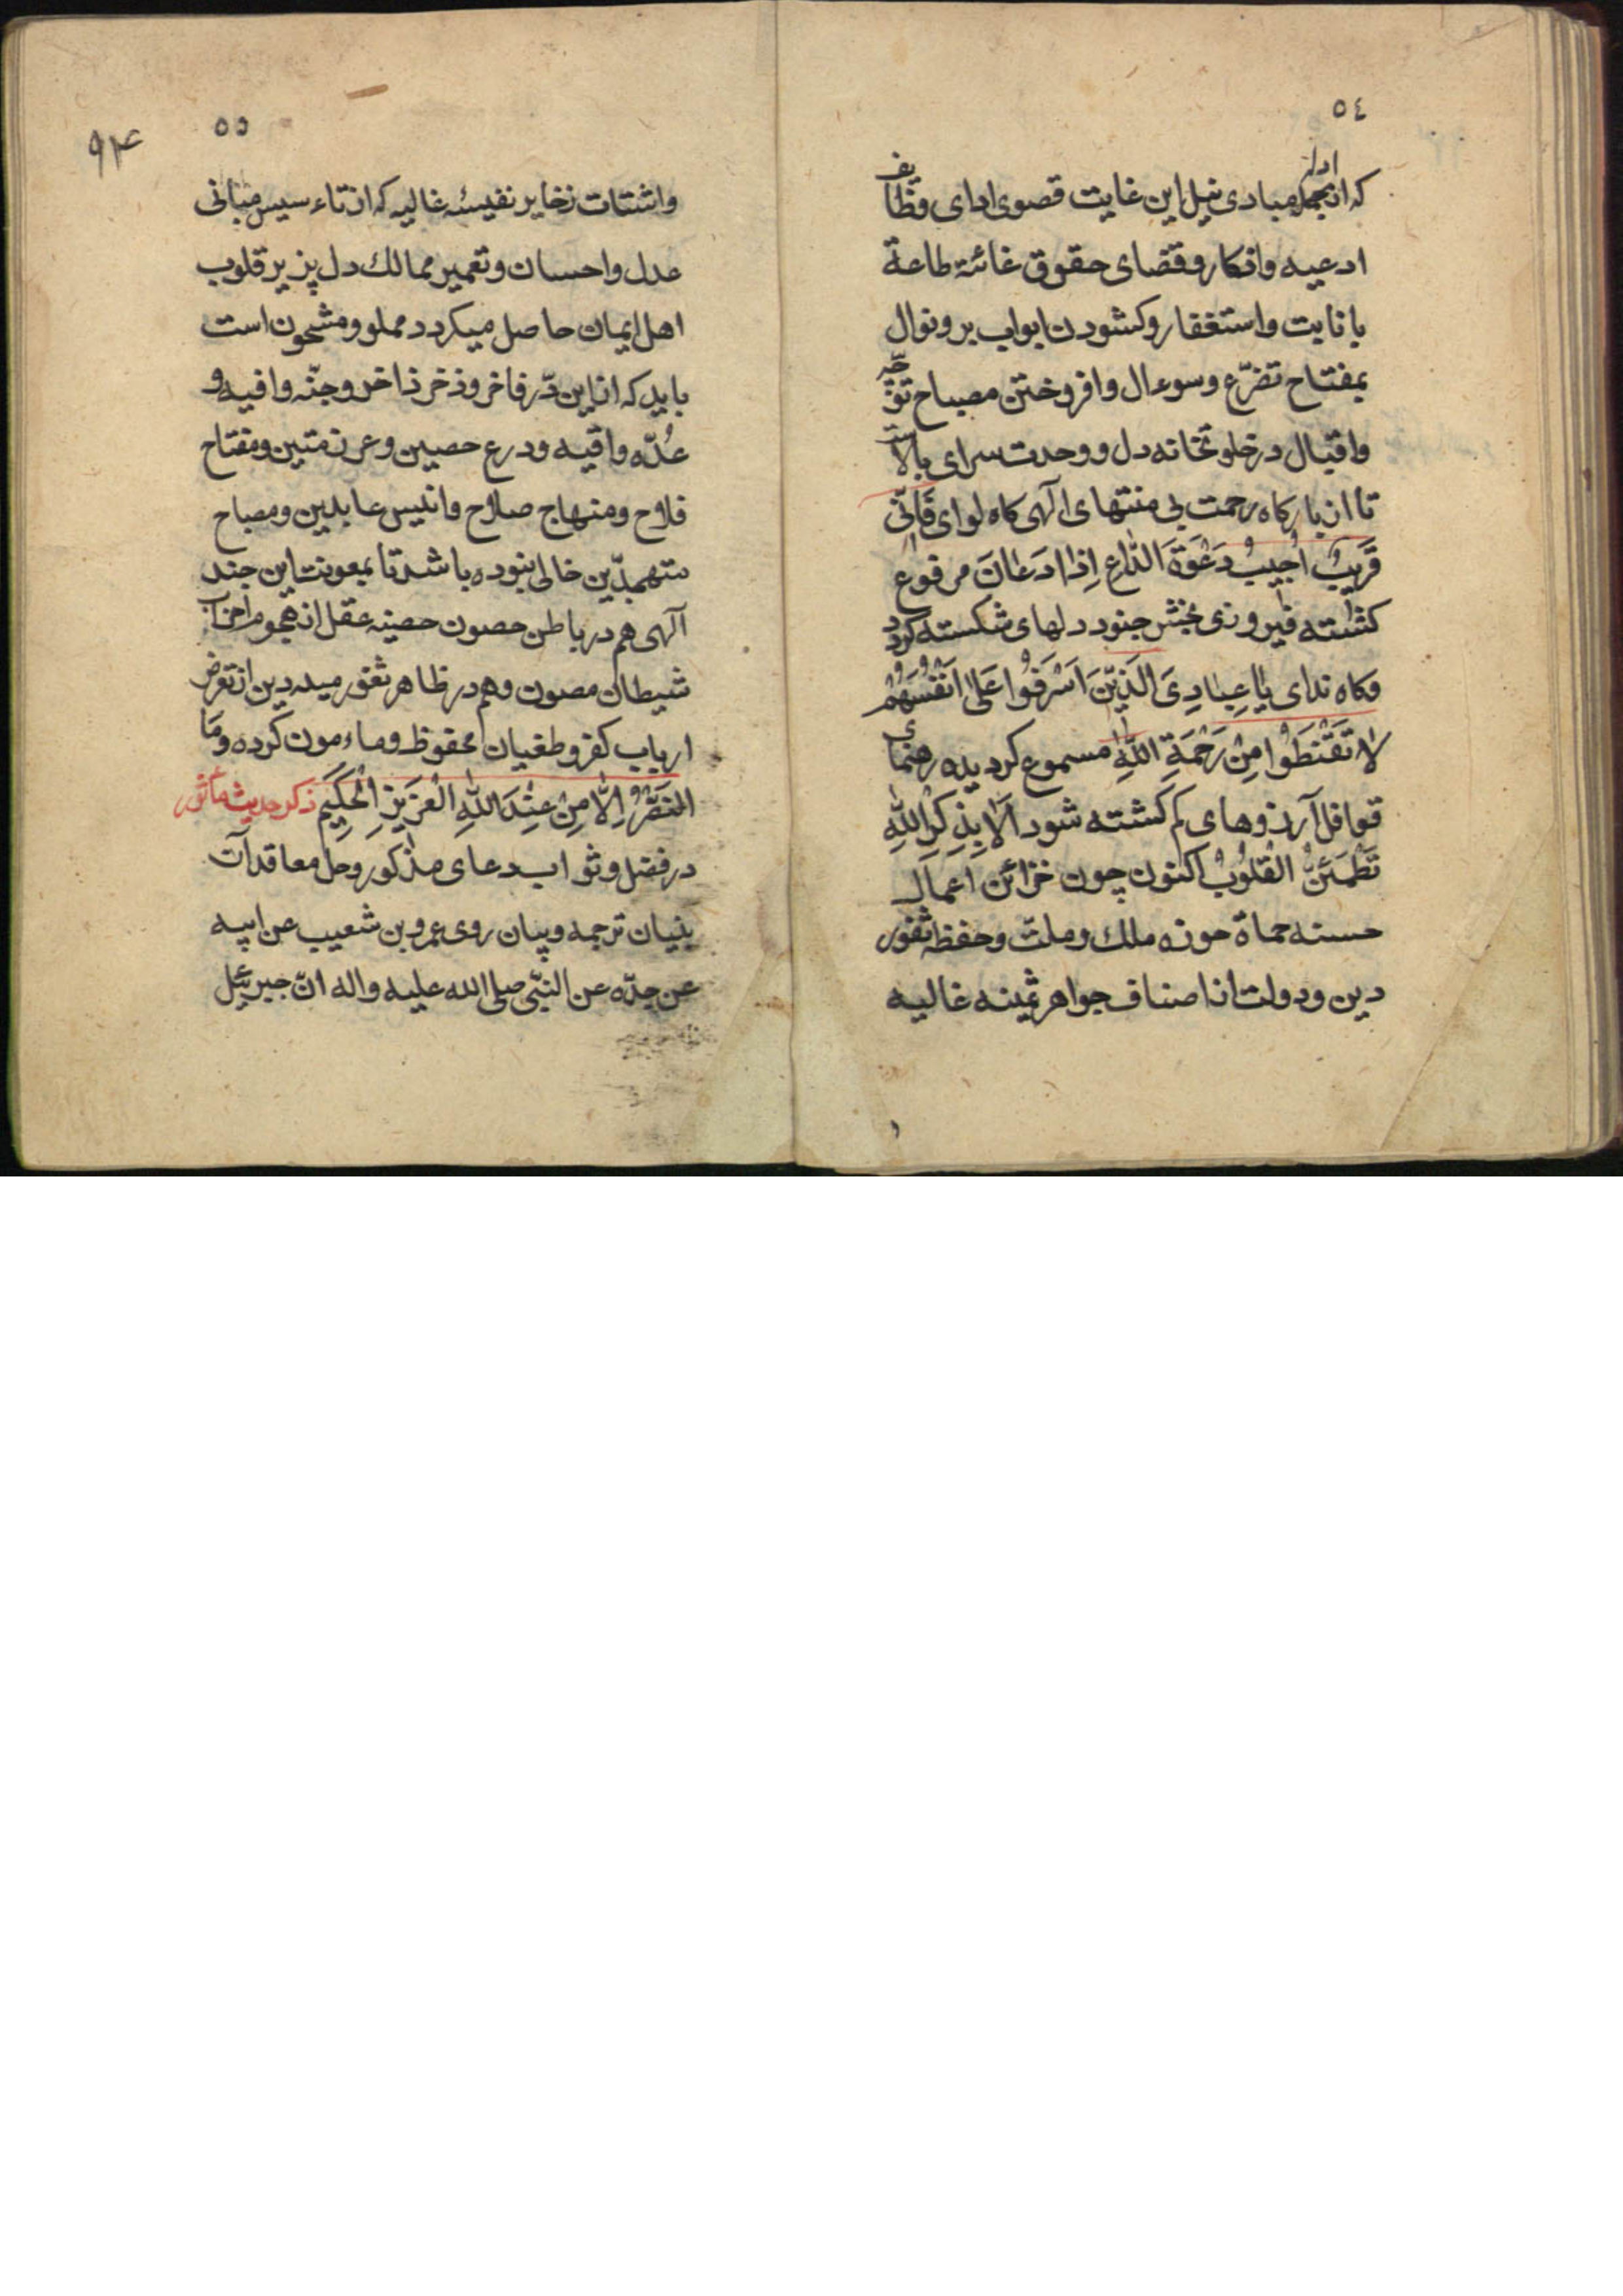 ٥٤
که ازجمله مبادی نیل این غایت قصوی ادای وظایف
ادعیه واذکار وقضای حقوق غائتۀ طاعة
بانابت واستغفار وکشودن ابواب بر ونوال
بمفتاح تضرّع وسوءال وافروختن مصباح توجّه
واقبال در خلوتخانه دل ووحدت سرای بالا
تا از بارکاه رحمت بی منتهای الهی کاه لوای فَاِنّی
قَرِیبٌ اُجِیبُ دَعْوَةَ الدَّاعِ اِذَا دَعَانَ مرفوع
کشته فیروزی بخش جنود دلهای شکسته کردد
وکاه ندای یَا عِبَادِیَ الَّذِیْنَ اَسْرَفُوا عَلٰی اَنْفُسِهِمْ
لَا تَقْنَطُوا مِنْ رَحْمَةِ اللّٰهِ مسموع کردیده رهنمای
قوافل آرزوهای کم کشته شود اَلَا بِذِکْرِ اللّٰهِ
تَطْمَئِنُّ الْقُلُوْبُ اکنون چون خزائن اعمال
حسنه حماة حوزه ملك وملتّ وحفظه ثغور
دین ودولت از اصناف جواهر ثمینه غالیه
٥٥
٩٤
واشتات زخایر نفیسۀ غالیه که از تاءسیس مبانی
عدل واحسان وتعمیر ممالك دل پزیر قلوب
اهل ایمان حاصل میکردد مملو ومشحون است
باید که از این دّر فاخر وذخر ذاخر وجنّه وافیه و
عُدّه واقیه ودرع حصین وعرز متین ومفتاح
فلاح ومنهاج صلاح وانیس عابدین ومصباح
متهجدّین خالی نبوده باشد تا بمعونت این جند
آلهی هم در باطن حصون حصینه عقل از هجوم احزاب
شیطان مصون وهم در ظاهر ثغور میدین از تعرض
ارباب کفر وطغیان محفوظ وماءمون کرده وَمَا
النَصْرُ اِلَّا مِنْ عِنْدِ اللّٰهِ الْعَزِیْزِ الْحَکِیْمِ ذکر حدیث ماثور
در فضل وثواب دعای مذکور وحل معاقد آن
بنیان ترجمه وبیان روی عمرو بن شعیب عن ابیه
عن جدّه عن النبّی صلی الله علیه واله انّ جبرئیل